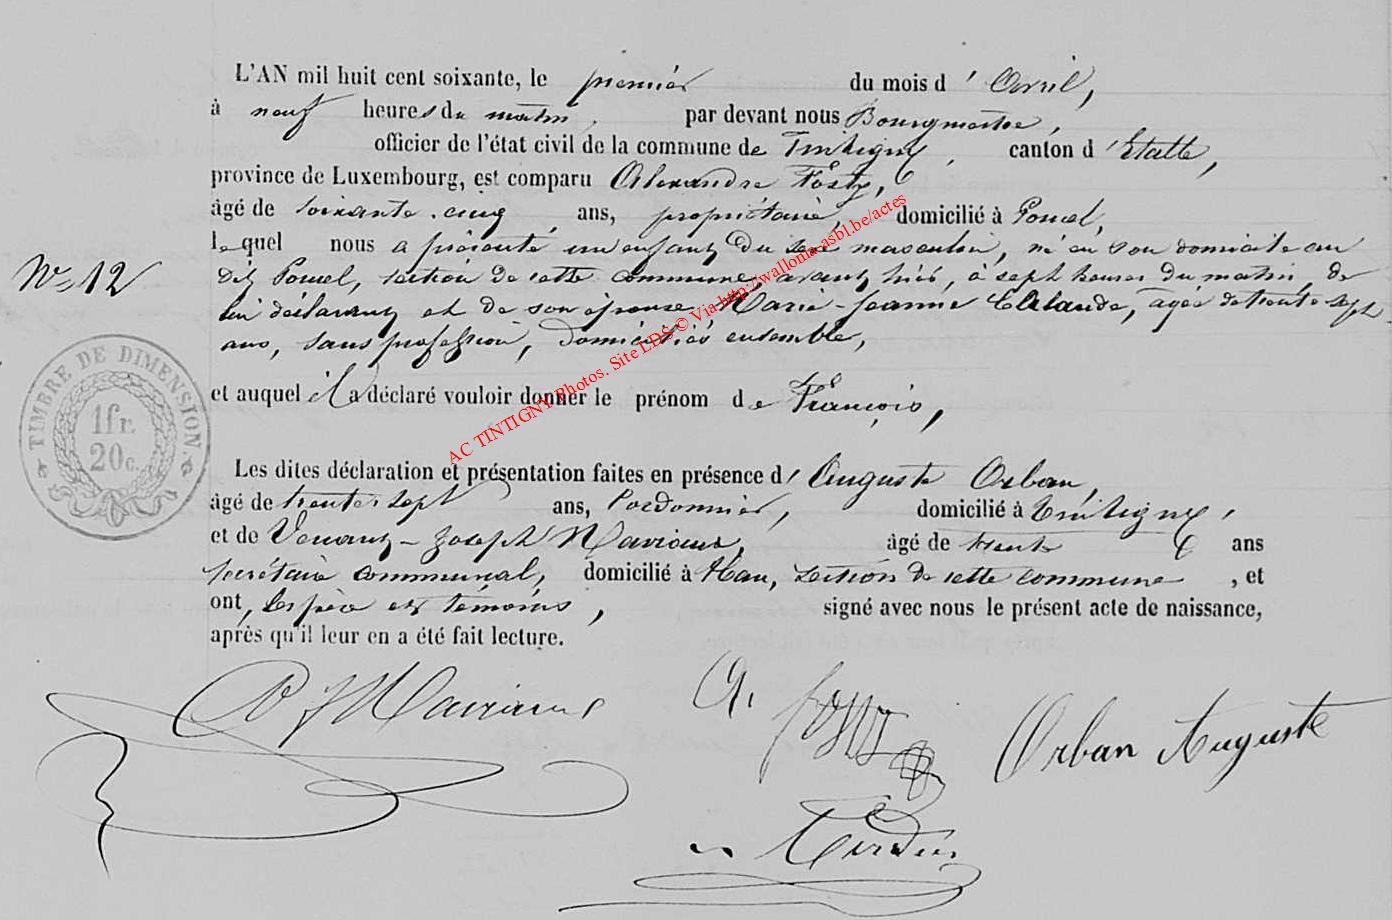 L'AN mil huit cent soixante, le premier du mois d'Avril,
à neuf heures du matin, par devant nous Bourgmestre,
officier de l'état civil de la commune de Tintigny, canton d'Etalle,
province de Luxembourg, est comparu Alexandre Fosty,
âgé de soixante-cinq ans, propriétaire, domicilié à Poncel,
lequel nous a présenté un enfant du sexe masculin, né en son domicile au
N° 12
dit Poncel, section de cette commune, avant hier, à sept heures du matin, de
lui déclarant et de son épouse Marie-Jeanne Claude, agée de trente sept
ans, sans profession, domiciliés ensemble,
et auquel il a déclaré vouloir donner le prénom de François,
TIMBRE DE DIMENSION
1 fr.
20 c.
AC TINTIGNY Photos. Site LDS © Via http://wallonia-asbl.be/actes
Les dites déclaration et présentation faites en présence d'Auguste Orban,
âgé de trente sept ans, Cordonnier, domicilié à Tintigny,
et de Venant-Joseph âgé de trente ans
secrétaire communal, domicilié à Han, section de cette commune, et
ont, les père et témoins, signé avec nous le présent acte de naissance,
après qu'il leur en a été fait lecture.
A. Fosty
Orban Auguste